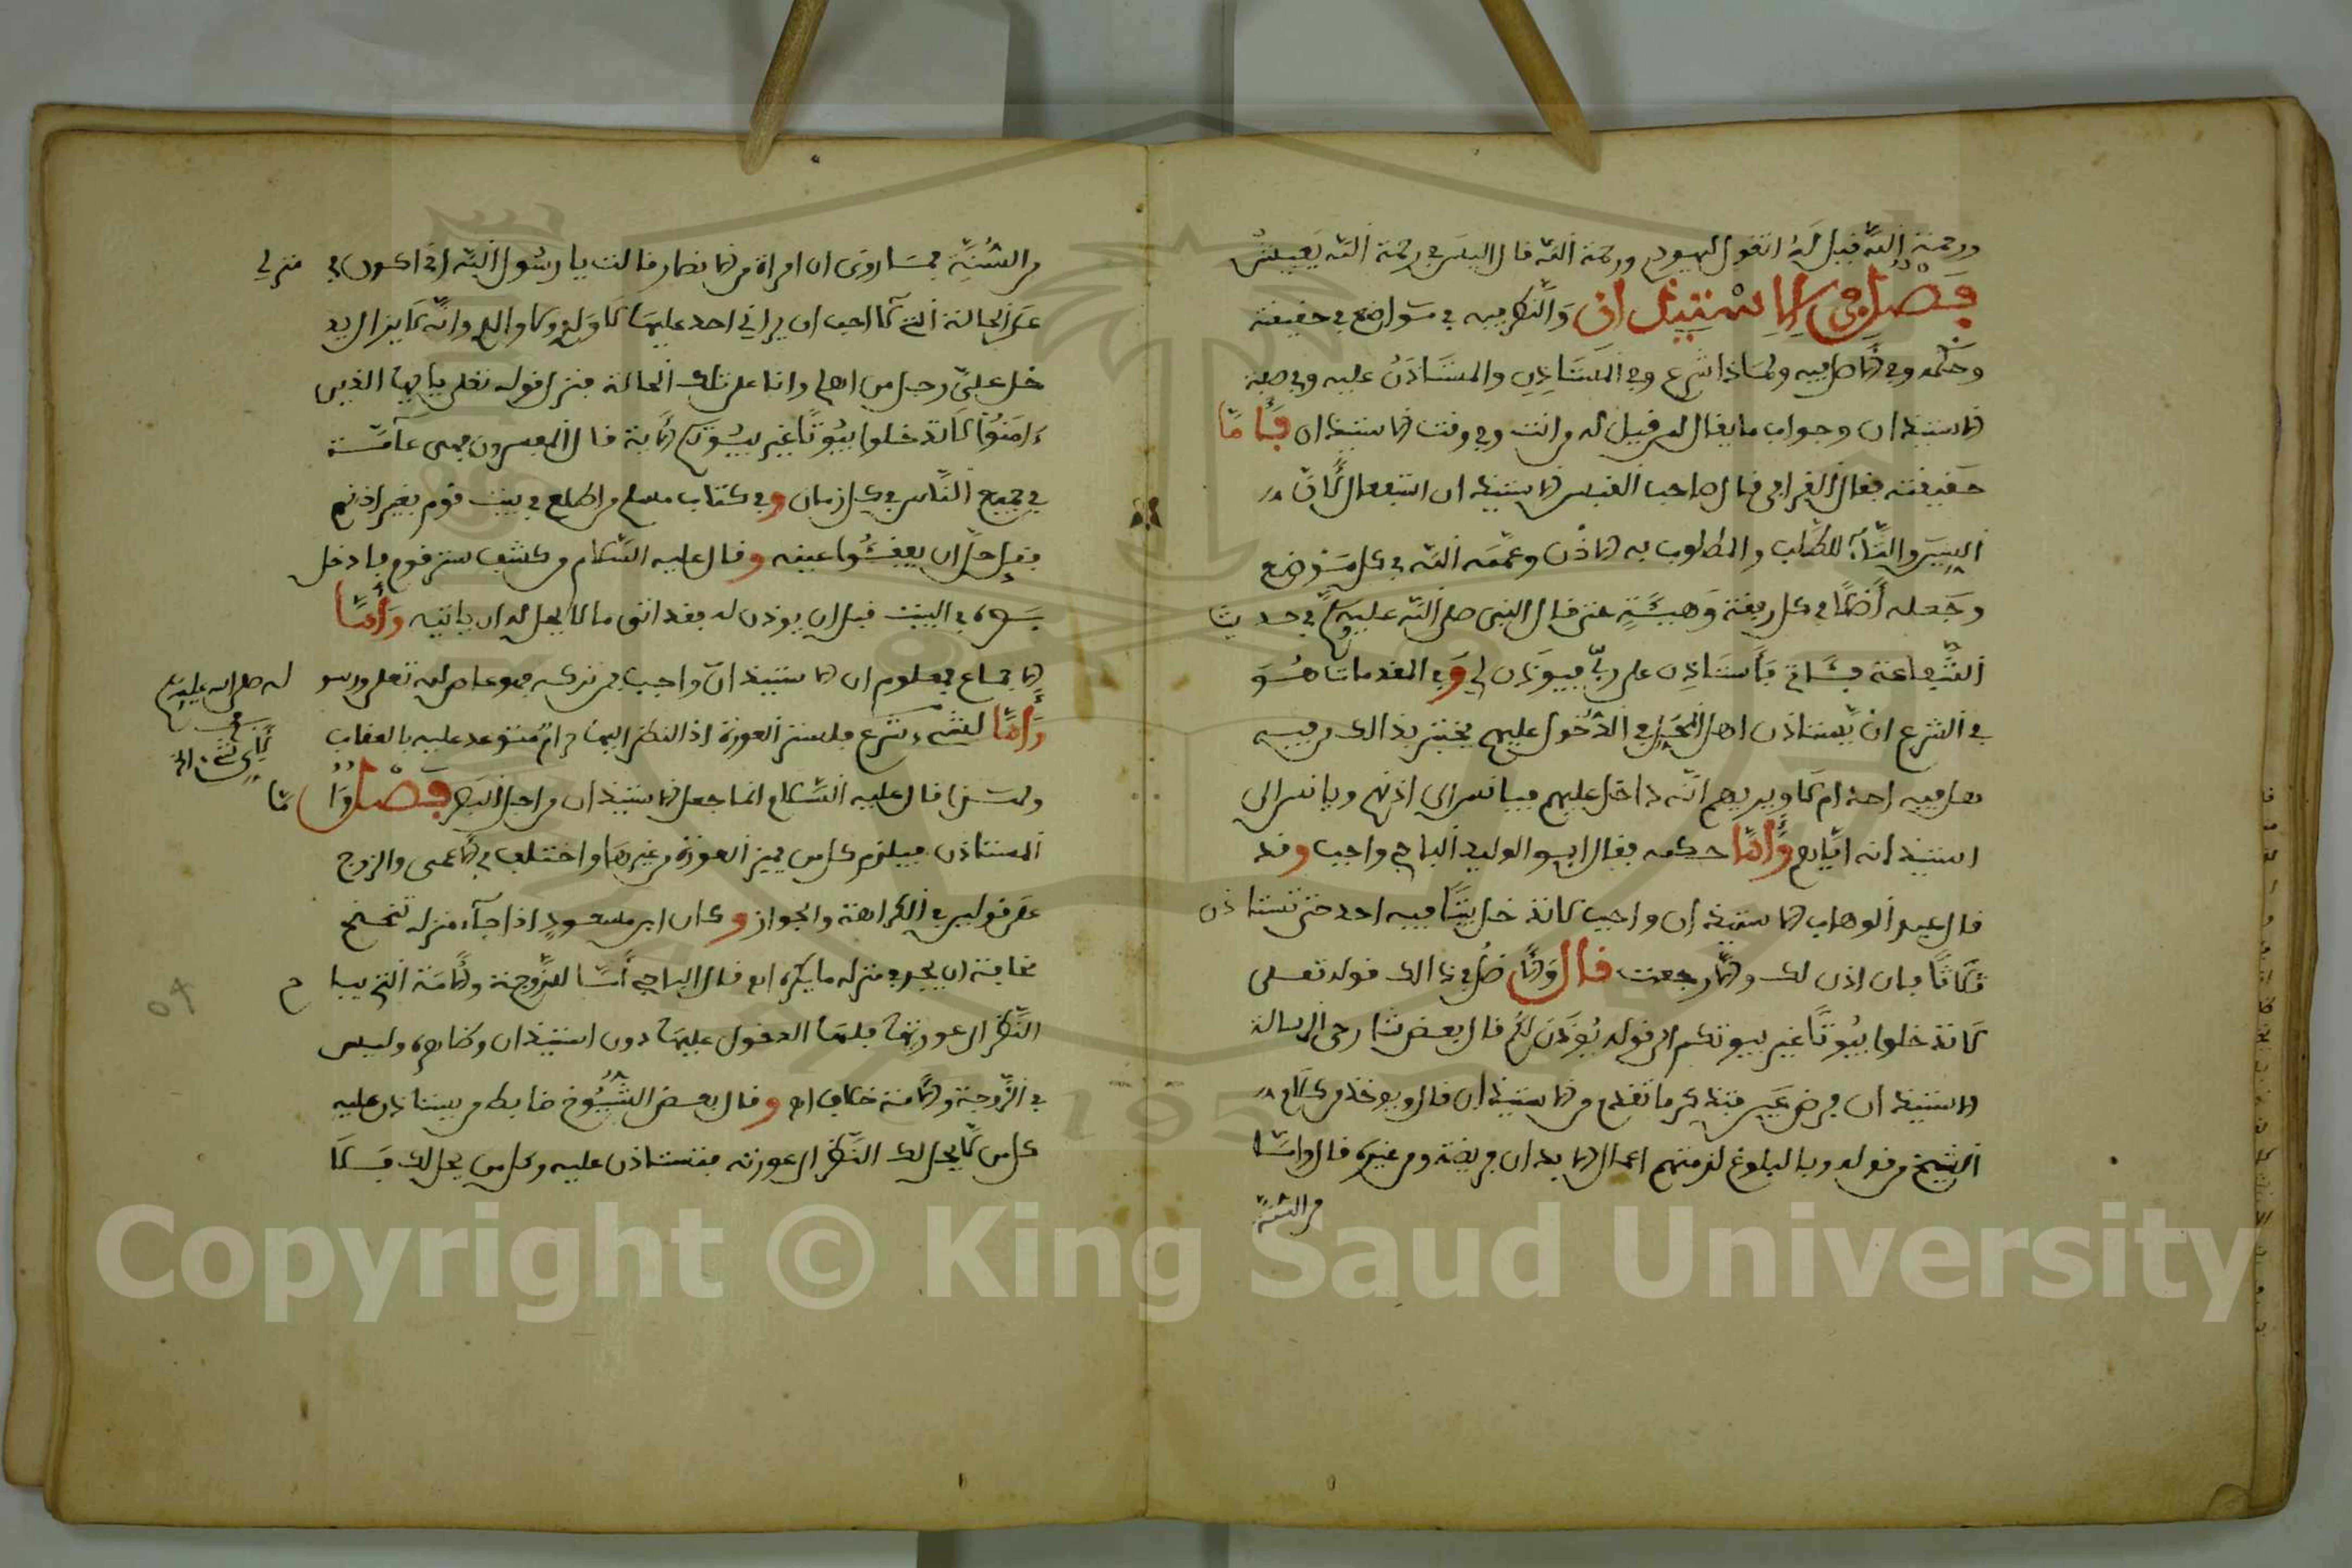 ورحمة الله فقيل له اتقول لليهودي ورحمة الله فقال اليس في رحمة الله يعيش
فصل في الاستيذان والنظر فيه في مواضع في حقيقته
وحكمه وفي الاصل فيه ولماذا شرع وفي المستاذن والمستاذن عليه وفي صفة
الاستيذان وجواب ما يقال لمن قيل له من انت وفي وقت الاستيذان فأما
حقيقته فقال القرافي قال صاحب القبس الاستيذان استفعال لان
السين والتاء للطلب والمطلوب به الاذن وعممه الله في كل موضع
وجعله أصلا في كل رفعة وهيئة حتى قال النبي صلى الله عليه وسلم في حديث
الشفاعة فئاتي فأستاذن على ربي فيوذن لي وفي المقدمات هو
في الشرع ان يستاذن اهل المحل في الدخول عليهم يختبر بذالك من فيه
هل فيه احد ام لا ويريهم انه داخل عليهم فيانس الى اذنهم ويانس الى
استيذانه اياهم وأما حكمه فقال ابو الوليد الباجي واجب وقد
قال عبد الوهاب الاستيذان واجب لا تدخل بيتا فيه احد حتى تستاذن
ثلاثا فان اذن لك والا رجعت قال والاصل في ذالك قوله تعلى
لا تدخلوا بيوتا غير بيوتكم الى قوله يوذن لكم قال بعض شارحي الرسالة
الاستيذان فرض عين فتذكر ما تقدم من الاستيذان قال ويوخذ من كلام
الشيخ من قوله وبالبلوغ لزمتهم اعمال الابدان فريضة ومن غيره قال واما
من السنة
من السنة فما روي ان امراة من الانصار قالت يا رسول الله اني اكون في منزلي
على الحالة التي لا احب ان يراني احد عليها لا ولد ولا والد وانه لا يزال يد
خل علي رجل من اهلي وانا على تلك الحالة فنزل قوله تعلى يايها الذين
ءامنوا لا تدخلوا بيوتا غير بيوتكم الآية قال المفسرون فهي عامة
في جميع الناس في كل زمان وفي كتاب مسلم من اطلع في بيت قوم بغير اذنهم
فقد حل ان يفقئوا عينه وقال عليه السلام من كشف ستر قوم فادخل
بصره في البيت قبل ان يوذن له فقد اتى ما لا يحل له ان ياتيه وأما
الاجماع فمعلوم ان الاستيذان واجب فمن تركه فهو عاص لله تعلى ورسو له صلى الله عليه وسلم
وأما لاي شيء شرع فلستر العورة اذ النظر اليها حرام متوعد عليه بالعقاب
ولهذا قال عليه السلام انما جعل الاستيذان من اجل البصر فصل واما
المستاذن فيلزم كل من يميز العورة من غيرها واختلف في الاعمى والزوج
على قولين في الكراهة والجواز وكان ابن مسعود اذا جاء منزله تنحنح
مخافة ان يجد في منزله ما يكره اه قال الباجي أما للزوجة والامة التي يباح
النظر الى عورتها فلها الدخول عليها دون استيذان وظاهره وليس
في الزوجة والامة خلاف اه وقال بعض الشيوخ ضابط من يستاذن عليه
كل من لا يحل لك النظر الى عورته فتستاذن عليه وكل من يحل لك فلا